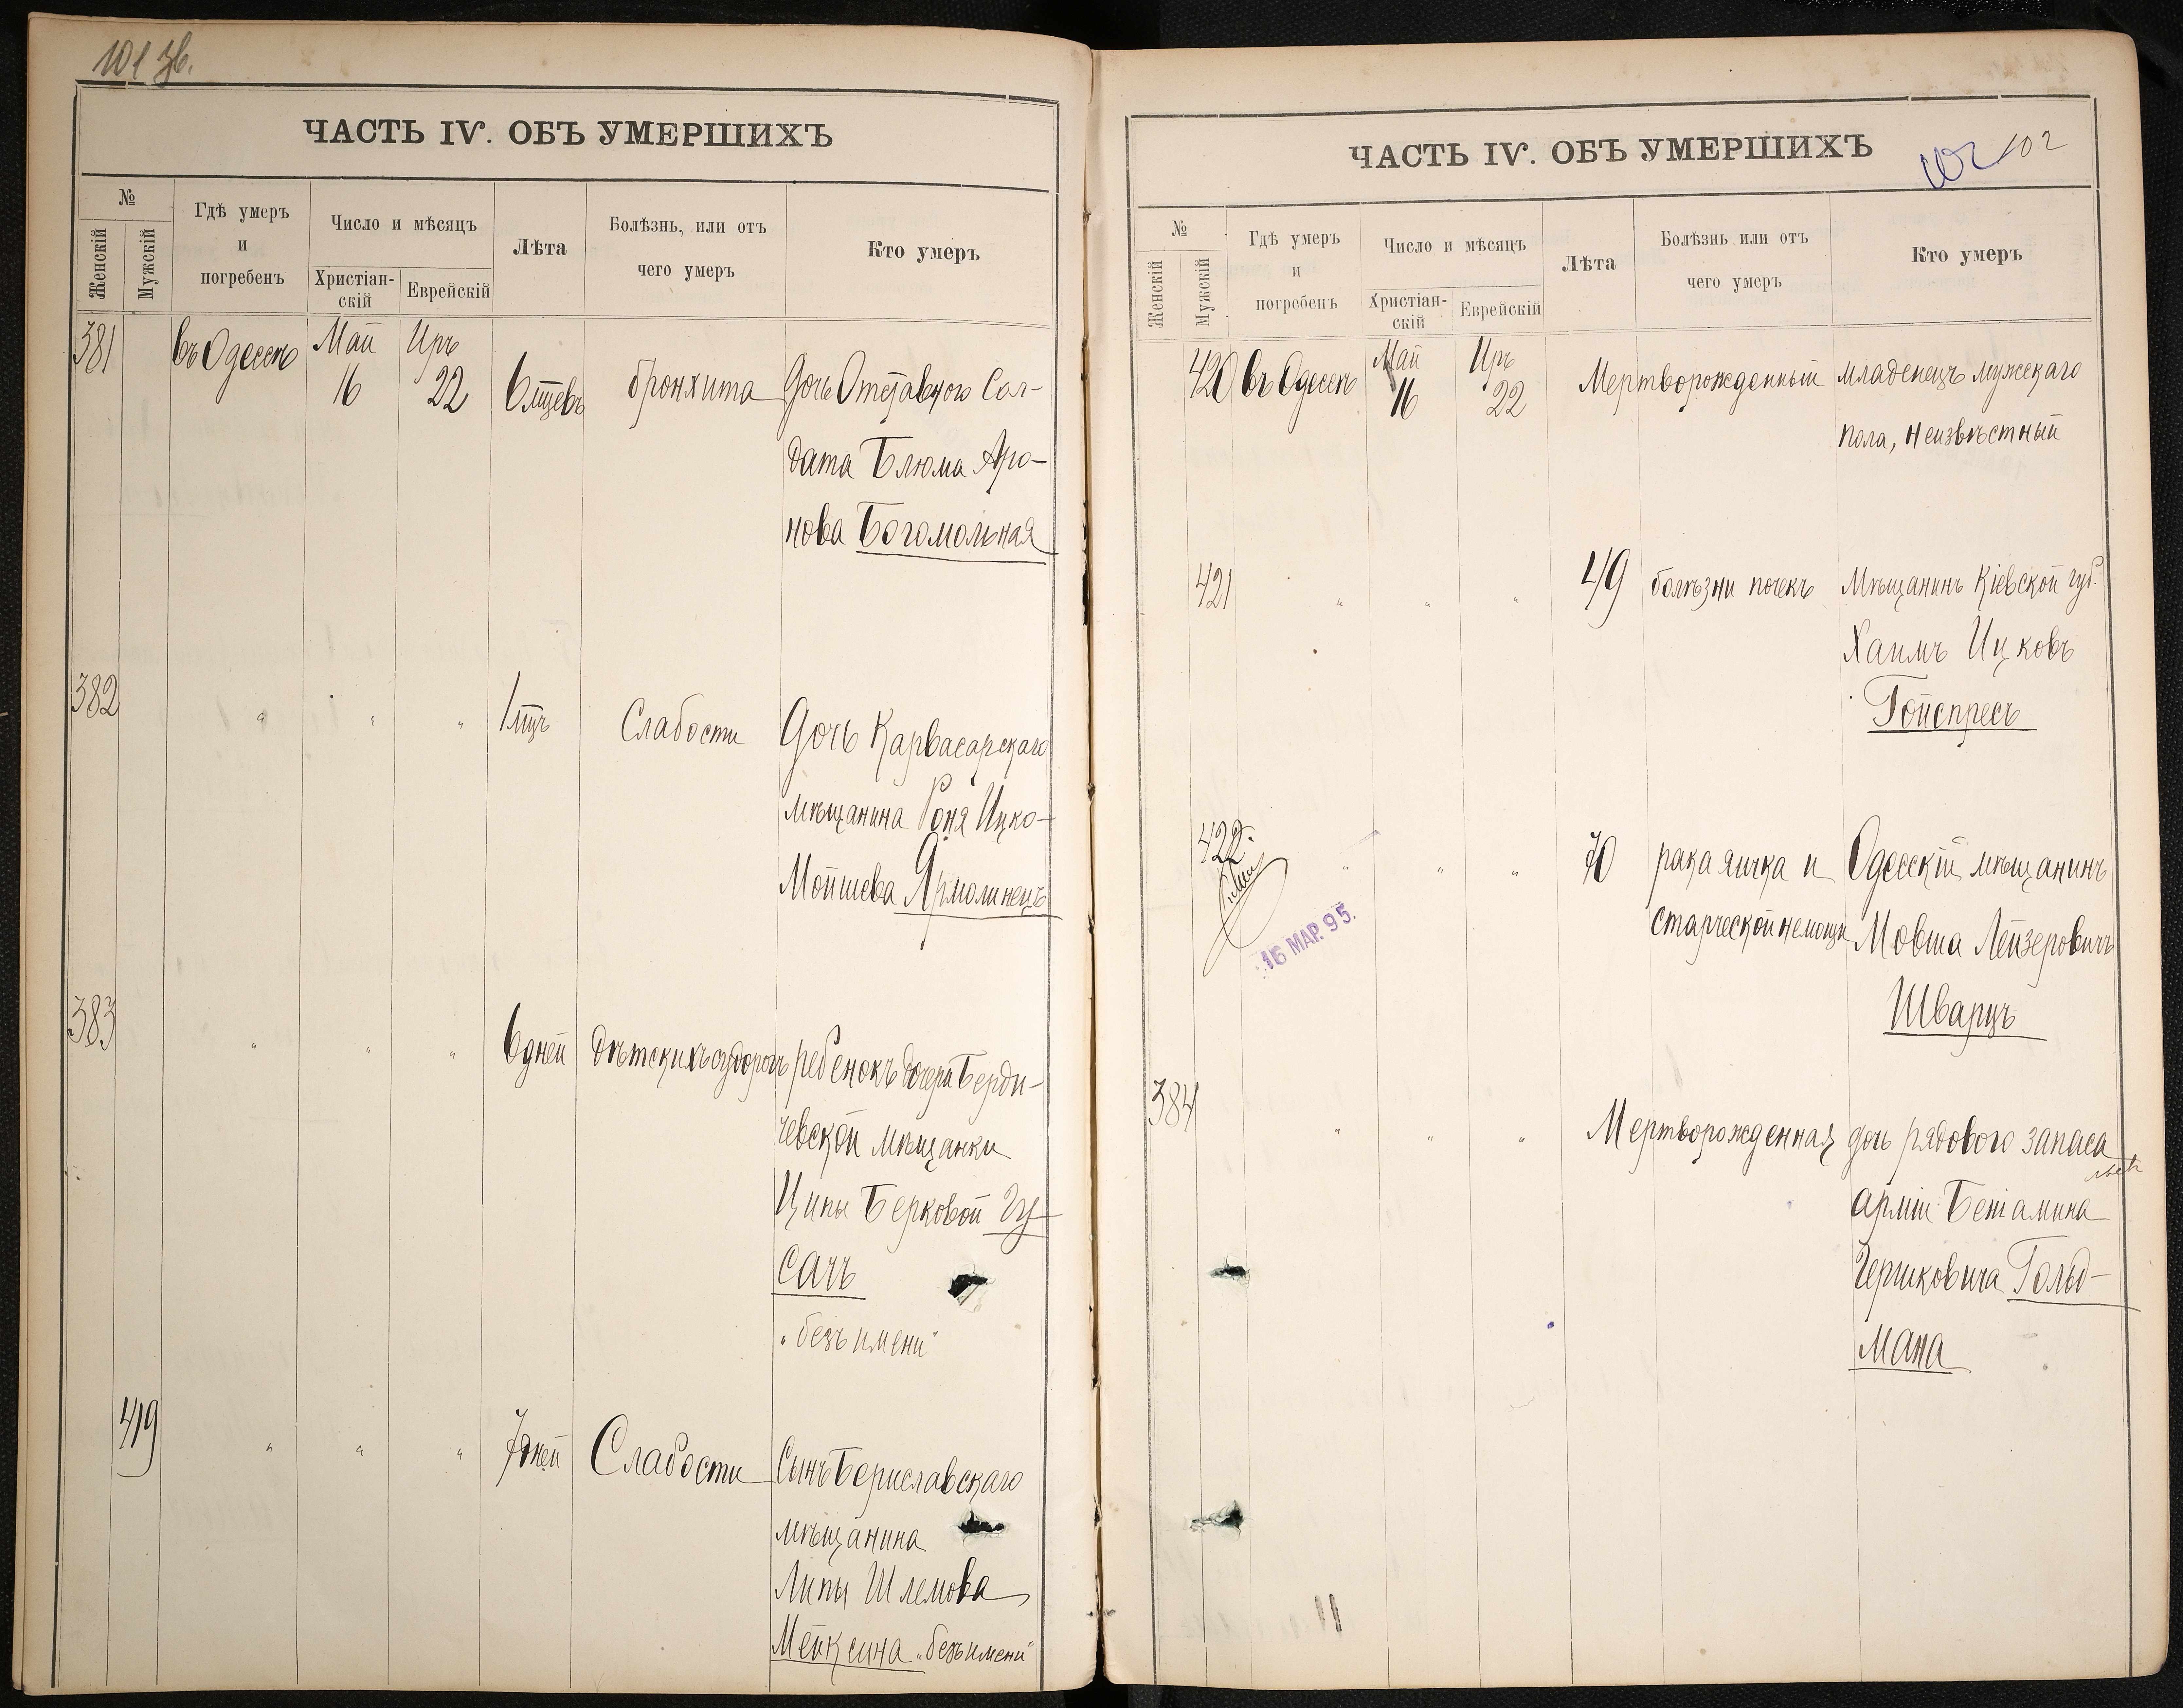 101 зв.
ЧАСТЬ IV. ОБЪ УМЕРШИХЪ
№
Женскій
Мужскій
Гдѣ умеръ
и
погребенъ
Число и мѣсяцъ
Христіан-
скій
Еврейскій
Лѣта
Болѣзнь, или отъ
чего умеръ
Кто умеръ
381 въ Одессѣ Май Иръ
16 22 6 мцевъ бронхита Дочь Отставного Сол-
дата Блюма Аро-
нова Богомольная
382 " " " 1 мцъ Слабости Дочь Карвасарскаго
мѣщанина Роня Ицко-
Мойшева Ярмолинецъ
383 " " " 6 дней дѣтскихъ судорогъ ребенокъ дочери Берди-
чевской мѣщанки
Ципы Берковой Гу-
сачъ
"безъ имени"
419 " " " 7 дней Слабости Сынъ Бериславскаго
мѣщанина
Липы Шлемова
Мейксина "безъ имени"
ЧАСТЬ IV. ОБЪ УМЕРШИХЪ
102 102
№
Женскій
Мужскій
Гдѣ умеръ
и
погребенъ
Число и мѣсяцъ
Христіан-
скій
Еврейскій
Лѣта
Болѣзнь или отъ
чего умеръ
Кто умеръ
420 въ Одессѣ Май Иръ
16 22 Мертворожденный младенецъ мужскаго
пола, неизвѣстный
421 " " " 49 болѣзни почекъ Мѣщанинъ Кіевской губ.
Хаимъ Ицковъ
Гойспресъ
422. " " " 70 рака яичка и Одесскій мѣщанинъ
старческой немощи Мовша Лейзеровичъ
16 МАР. 95.
Шварцъ
384 " " " Мертворожденная дочь рядового запаса
арміи Беніамина
Гершковича Гольд-
мана